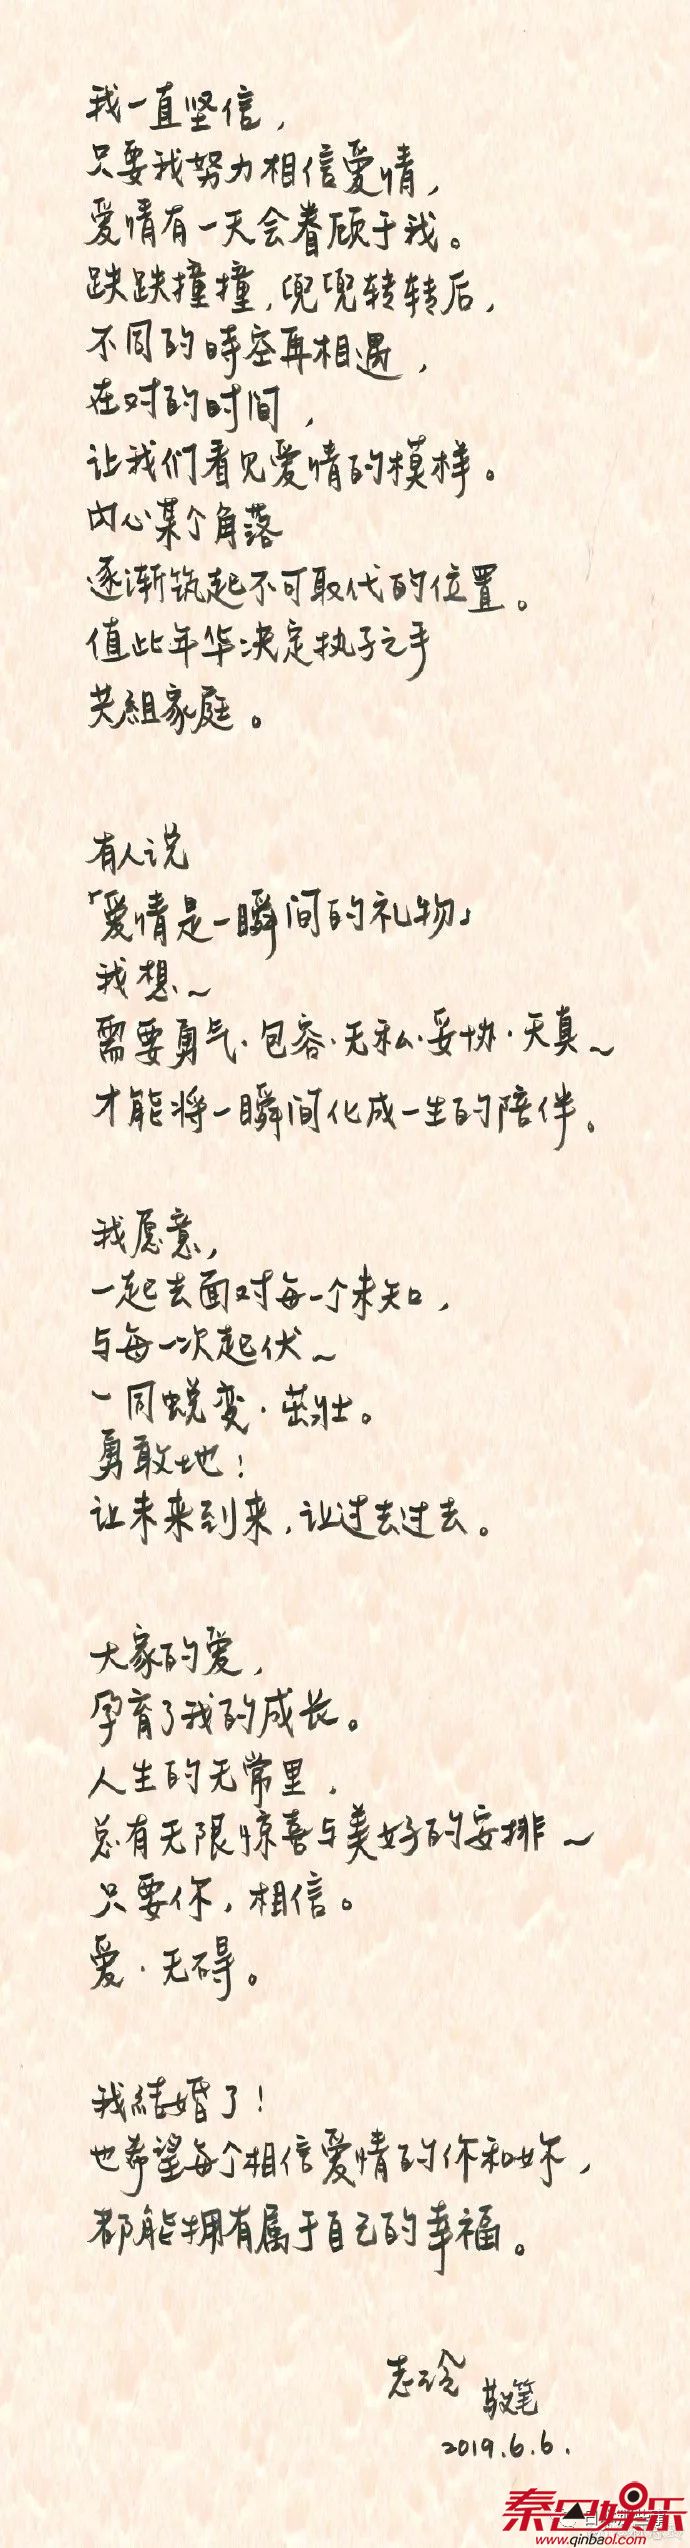 我一直坚信，
只要我努力相信爱情，
爱情有一天会眷顾于我。
跌跌撞撞，兜兜转转后，
不同的時空再相遇，
在对的时间，
让我们看见爱情的模样。
内心某个角落
逐渐筑起不可取代的位置。
值此年华决定执子之手
共組家庭。
有人说
「爱情是一瞬间的礼物」
我想~
需要勇气·包容·无私·妥协·天真~
才能将一瞬间化成一生的陪伴。
我愿意，
一起去面对每一个未知，
与每一次起伏~
一同蜕变·茁壮。
勇敢地！
让未来到来，让过去过去。
大家的爱，
孕育了我的成长。
人生的无常里，
总有无限惊喜与美好的安排~
只要你，相信。
爱·无碍。
我結婚了！
也希望每个相信爱情的你和妳，
都能拥有属于自己的幸福。
志玲 敬笔
2019.6.6.
秦巴娱乐
www.qinbaol.com